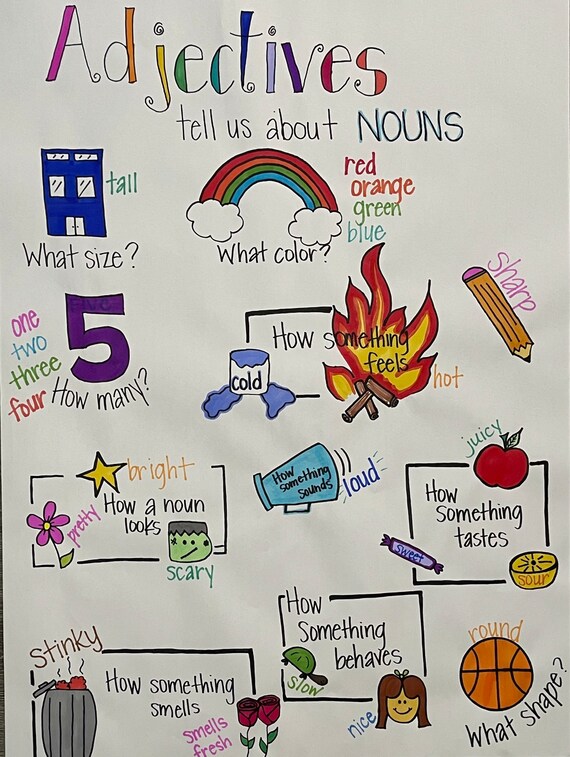 Adjectives
tell us about NOUNS
tall
What size?
red
orange
green
blue
What color?
sharp
one
two
three
four
five
5
How many?
How something
feels
cold
hot
bright
pretty
How a noun
looks
scary
How
something
sounds
loud
juicy
How
Something
tastes
sweet
sour
stinky
How something
smells
smells
fresh
How
Something
behaves
slow
nice
round
What shape?